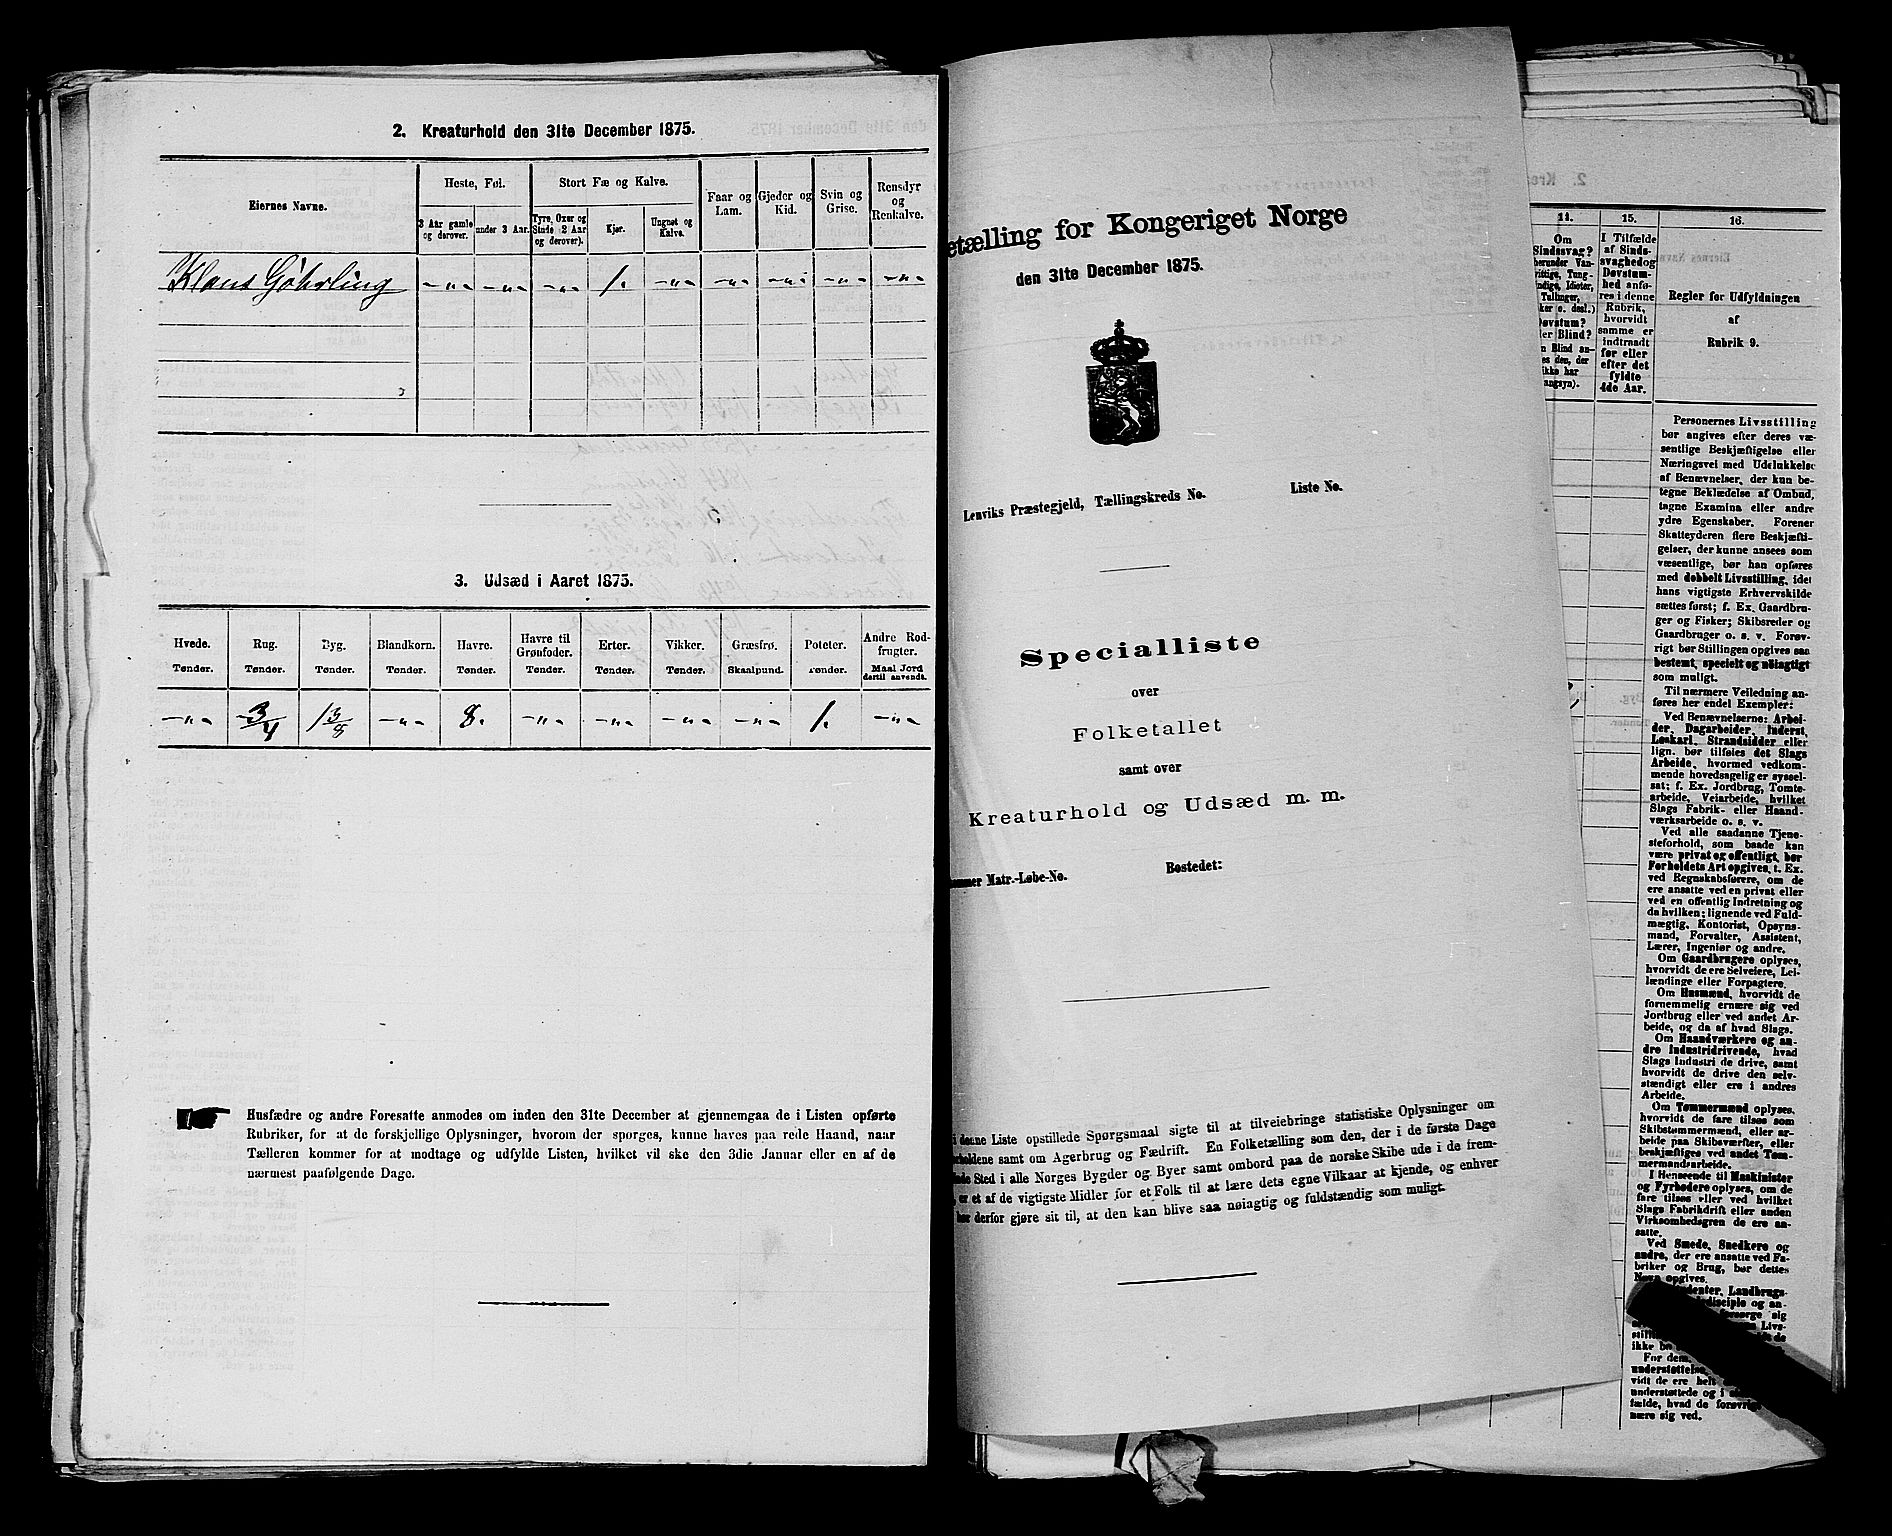 2. Kreaturhold den 31te December 1875.
Eiernes Navne.
Heste, Føl.
Stort Fæ og Kalve.
Faar og Lam.
Gjeder og Kid.
Svin og Grise.
Rensdyr og Renkalve.
3 Aar gamle og derover.
under 3 Aar.
Tyre, Oxer og Stude (2 Aar og derover).
Kjør.
Ungnøt og Kalve.
Klaus Göhrling -"- -"- -"- 1. -"- -"- -"- -"- -"-
3. Udsæd i Aaret 1875.
Hvede. Rug. Byg. Blandkorn. Havre. Havre til Grønfoder. Erter. Vikker. Græsfrø. Poteter. Andre Rodfrugter.
Tønder. Tønder. Tønder. Tønder. Tønder. Tønder. Tønder. Tønder. Skaalpund. Tønder. Maal Jord dertil anvendt.
-"- 3/4 1 3/8 -"- 8. -"- -"- -"- -"- 1. -"-
Husfædre og andre Foresatte anmodes om inden den 31te December at gjennemgaa de i Listen opførte
Rubriker, for at de forskjellige Oplysninger, hvorom der spørges, kunne haves paa rede Haand, naar
Tælleren kommer for at modtage og udfylde Listen, hvilket vil ske den 3die Januar eller en af de
nærmest paafølgende Dage.
etælling for Kongeriget Norge
den 31te December 1875.
Lenviks Præstegjeld, Tællingskreds No. Liste No.
Specialliste
over
Folketallet
samt over
Kreaturhold og Udsæd m. m.
Matr.-Løbe-No. Bostedet:
i denne Liste opstillede Spørgsmaal sigte til at tilveiebringe statistiske Oplysninger om
holdene samt om Agerbrug og Fædrift. En Folketælling som den, der i de første Dage
Sted i alle Norges Bygder og Byer samt ombord paa de norske Skibe ude i de frem-
er et af de vigtigste Midler for et Folk til at lære dets egne Vilkaar at kjende, og enhver
bør derfor gjøre sit til, at den kan blive saa nøiagtig og fuldstændig som muligt.
14.
Om
Sindssvag?
herunder Van-
vittige, Tung-
ndige, Idioter,
Tullinger,
ker o. desl.)
Døvstum?
ler Blind?
n Blind an-
es den, der
ikke har
angsyn).
15.
I Tilfælde
af Sinds-
svaghed og
Døvstum-
hed anfø-
res i denne
Rubrik,
hvorvidt
samme er
indtraadt
før eller
efter det
fyldte
4de Aar.
16.
Regler for Udfyldningen
af
Rubrik 9.
Personernes Livsstilling
bør angives efter deres væ-
sentlige Beskjæftigelse eller
Næringsvei med Udelukkelse
af Benævnelser, der kun be-
tegne Beklædelse af Ombud,
tagne Examina eller andre
ydre Egenskaber. Forener
Skatteyderen flere Beskjæfti-
gelser, der kunne ansees som
væsentlige, bør han opføres
med dobbelt Livsstilling, idet
hans vigtigste Erhvervskilde
sættes først; f. Ex. Gaardbru-
ger og Fisker; Skibsreder og
Gaardbruger o. s. v. Forøv-
rigt bør Stillingen opgives saa
bestemt, specielt og nøiagtigt
som muligt.
Til nærmere Veiledning an-
føres her endel Exempler:
Ved Benævnelserne: Arbei-
der, Dagarbeider, Inderst,
Løskarl, Strandsidder eller
lign. bør tilføies det Slags
Arbeide, hvormed vedkom-
mende hovedsagelig er syssel-
sat; f. Ex. Jordbrug, Tomte-
arbeide, Veiarbeide, hvilket
Slags Fabrik- eller Haand-
værksarbeide o. s. v.
Ved alle saadanne Tjene-
steforhold, som baade kan
være privat og offentligt, bør
Forholdets Art opgives, t. Ex.
ved Regnskabsførere, om de
ere ansatte ved en privat eller
ved en offentlig Indretning og
da hvilken; lignende ved Fuld-
mægtig, Kontorist, Opsyns-
mand, Forvalter, Assistent,
Lærer, Ingeniør og andre.
Om Gaardbrugere oplyses,
hvorvidt de ere Selveiere, Lei-
lændinge eller Forpagtere.
Om Husmænd, hvorvidt de
fornemmelig ernære sig ved
Jordbrug eller ved andet Ar-
beide, og da af hvad Slags.
Om Haandværkere og an-
dre Industridrivende, hvad
Slags Industri de drive, samt
hvorvidt de drive den selv-
stændigt eller ere i andres
Arbeide.
Om Tømmermænd oplyses,
hvorvidt de fare tilsøs som
Skibstømmermænd, eller ar-
beide paa Skibsværfter, eller
beskjæftiges ved andet Tøm-
mermandsarbeide.
I Henseende til Maskinister
og Fyrbødere oplyses, om de
fare tilsøs eller ved hvilket
Slags Fabrikdrift eller anden
Virksomhedsgren de ere an-
satte.
Ved Smede, Snedkere og
andre, der ere ansatte ved Fa-
briker og Brug, bør dettes
Navn opgives.
denter, Landbrugs-
disciple og an-
forsørge sig
Livs-
ikke
For dem,
understøttelse
vidt de ere helt
understøttede og i
fælde, hvad de forøvrigt
nære sig ved.